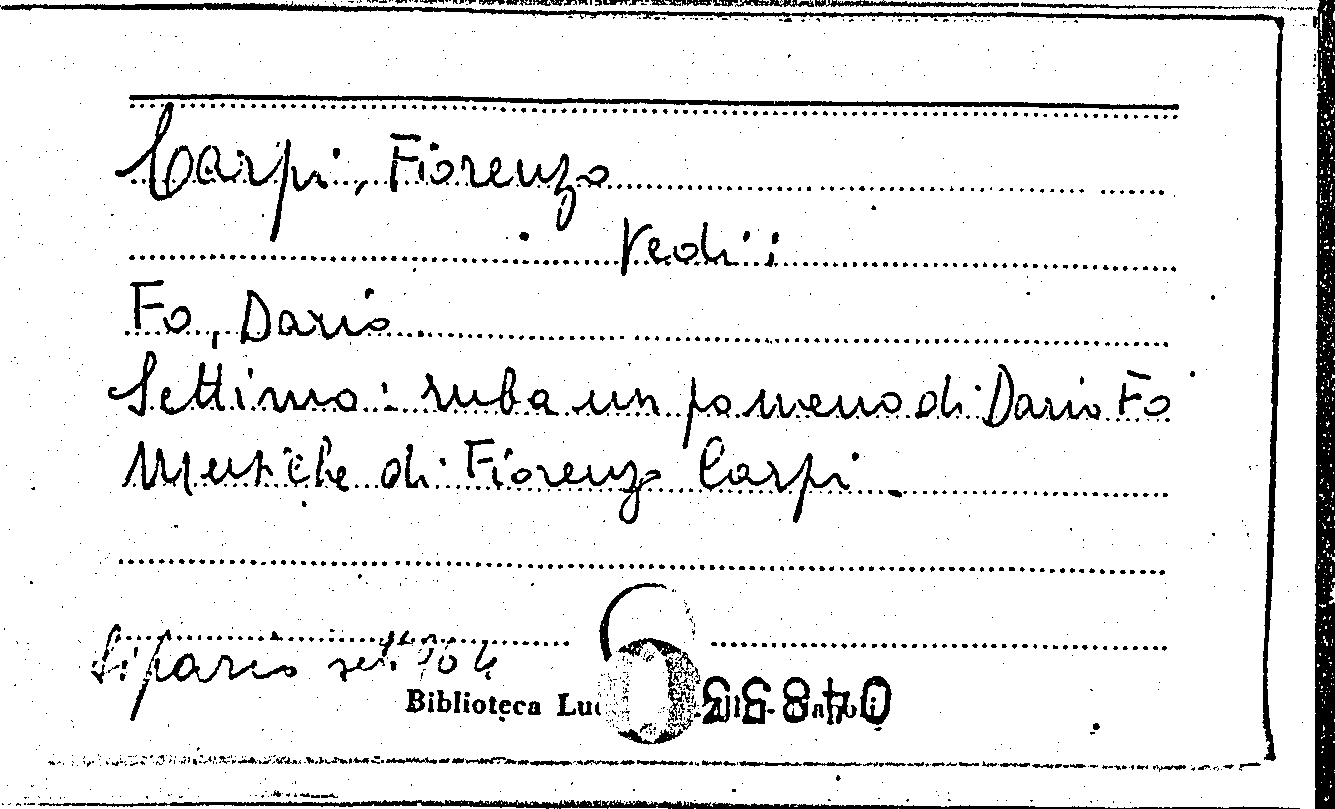 Carpi, Fiorenzo
Vedi:
Fo, Dario
Settimo: ruba un po meno di Dario Fo
Musiche di Fiorenzo Carpi
Sipario set. 964
Biblioteca Luc